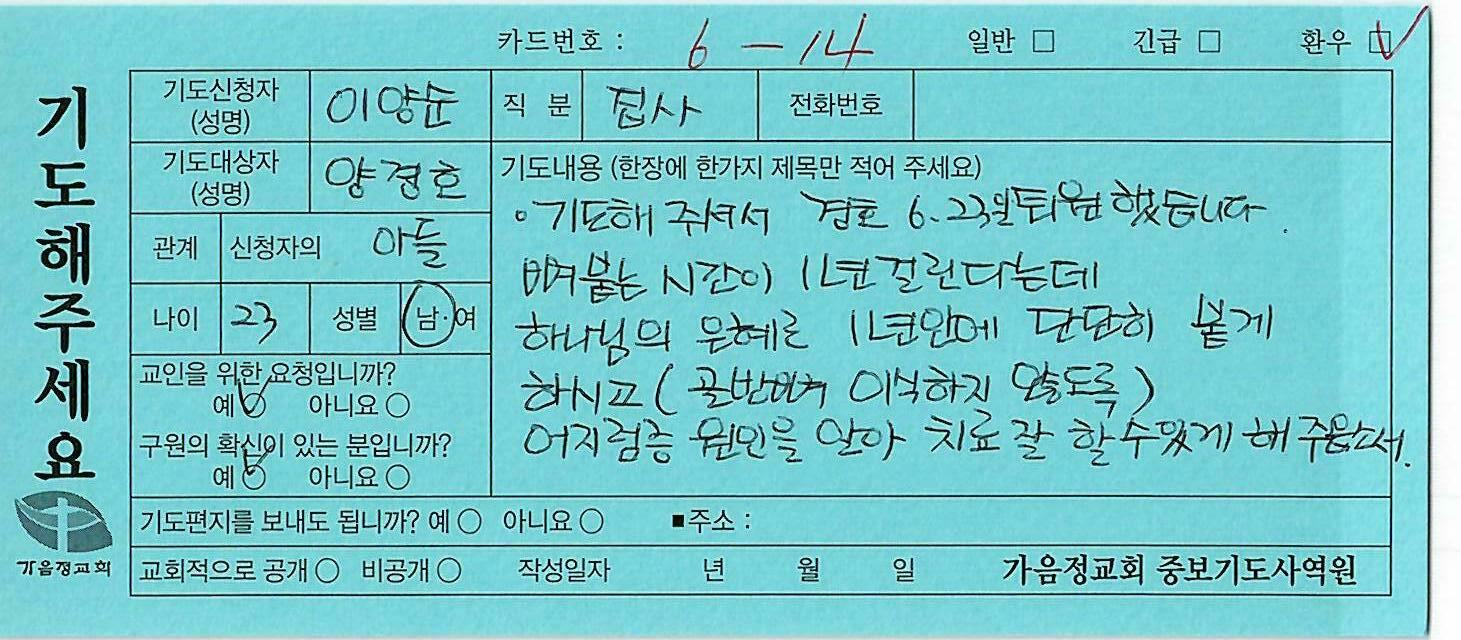 카드번호 : 6 - 14 일반 □ 긴급 □ 환우 □
기도해주세요
가음정교회
기도신청자 (성명) 이양순 직 분 집사 전화번호
기도대상자 (성명) 양경호
관계 신청자의 아들
나이 23 성별 남·여
교인을 위한 요청입니까?
예 ○ 아니요 ○
구원의 확신이 있는 분입니까?
예 ○ 아니요 ○
기도내용 (한장에 한가지 제목만 적어 주세요)
· 기도해 주셔서 경호 6.23일 퇴원 했습니다.
뼈 붙는 시간이 1년 걸린다는데
하나님의 은혜로 1년안에 단단히 붙게
하시고 (골반뼈 이식하지 않도록)
어지럼증 원인을 알아 치료 잘 할 수 있게 해 주옵소서.
기도편지를 보내도 됩니까? 예 ○ 아니요 ○ ■주소 :
교회적으로 공개 ○ 비공개 ○ 작성일자 년 월 일 가음정교회 중보기도사역원